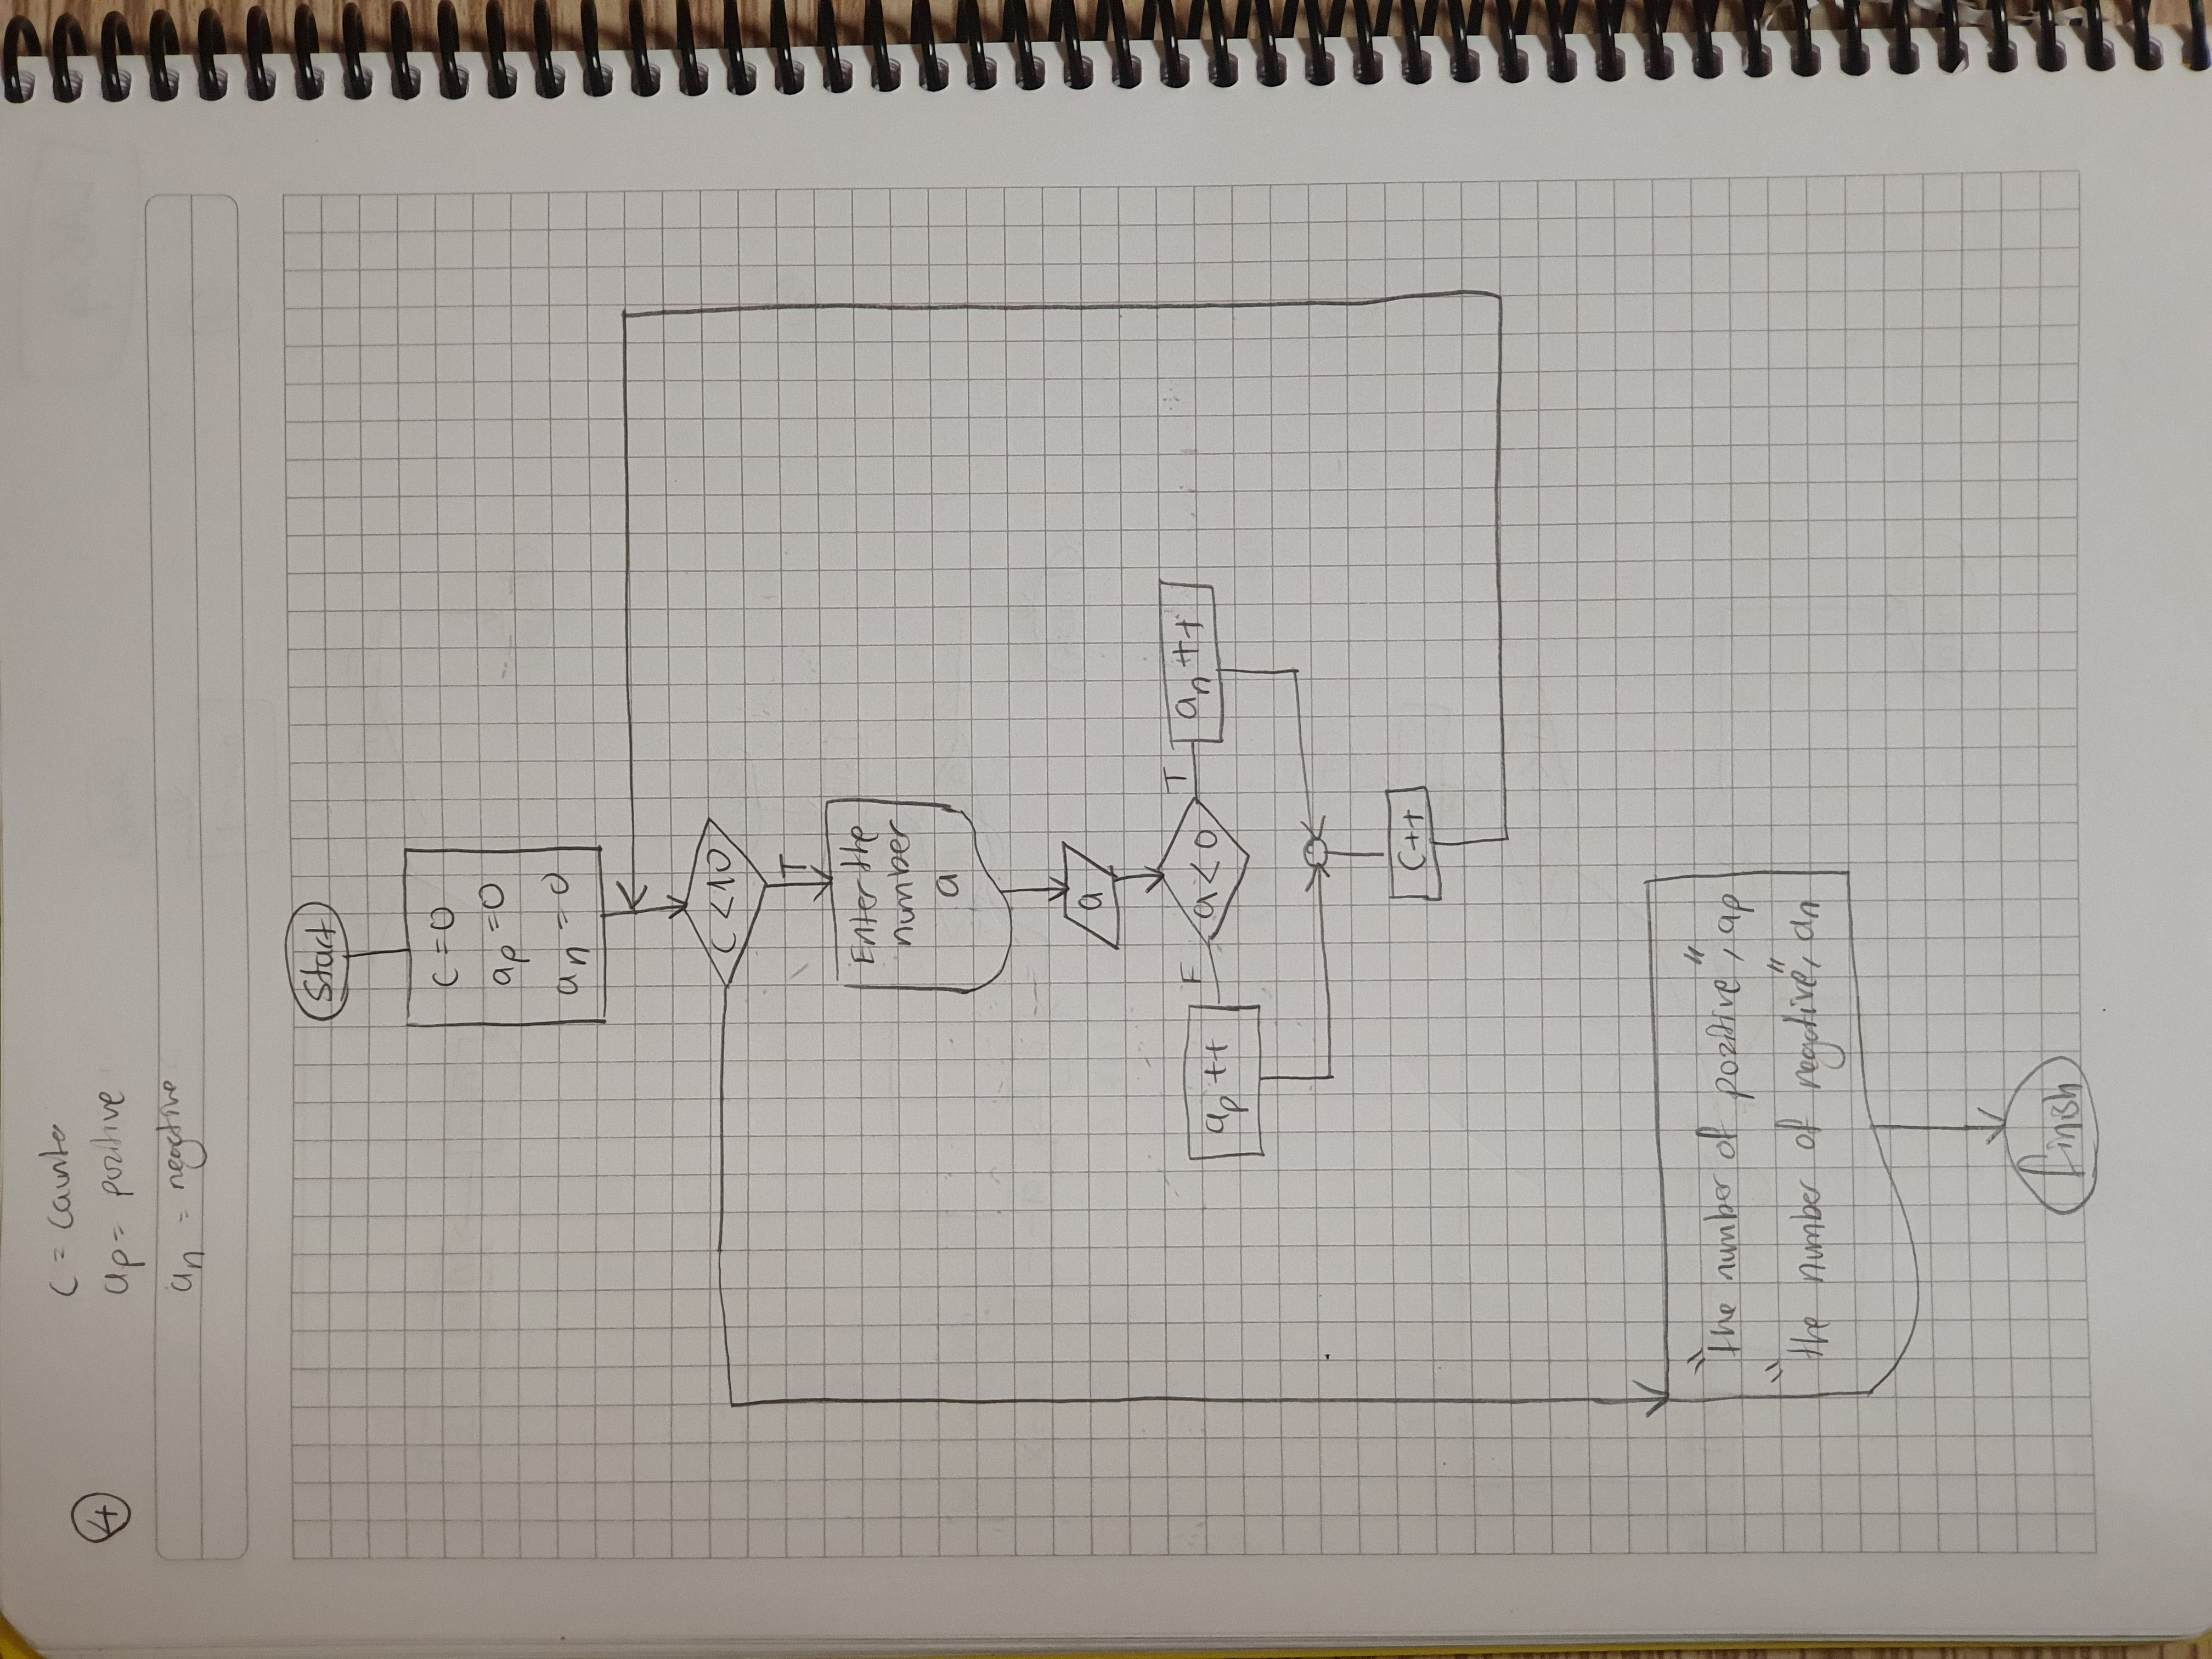 4
c = counter
ap = pozitive
an = negative
Start
c = 0
ap = 0
an = 0
c < 10
T
Enter the
number
a
a
a < 0
F
T
ap ++
an ++
c++
"the number of pozitive", ap
"the number of negative", an
finish